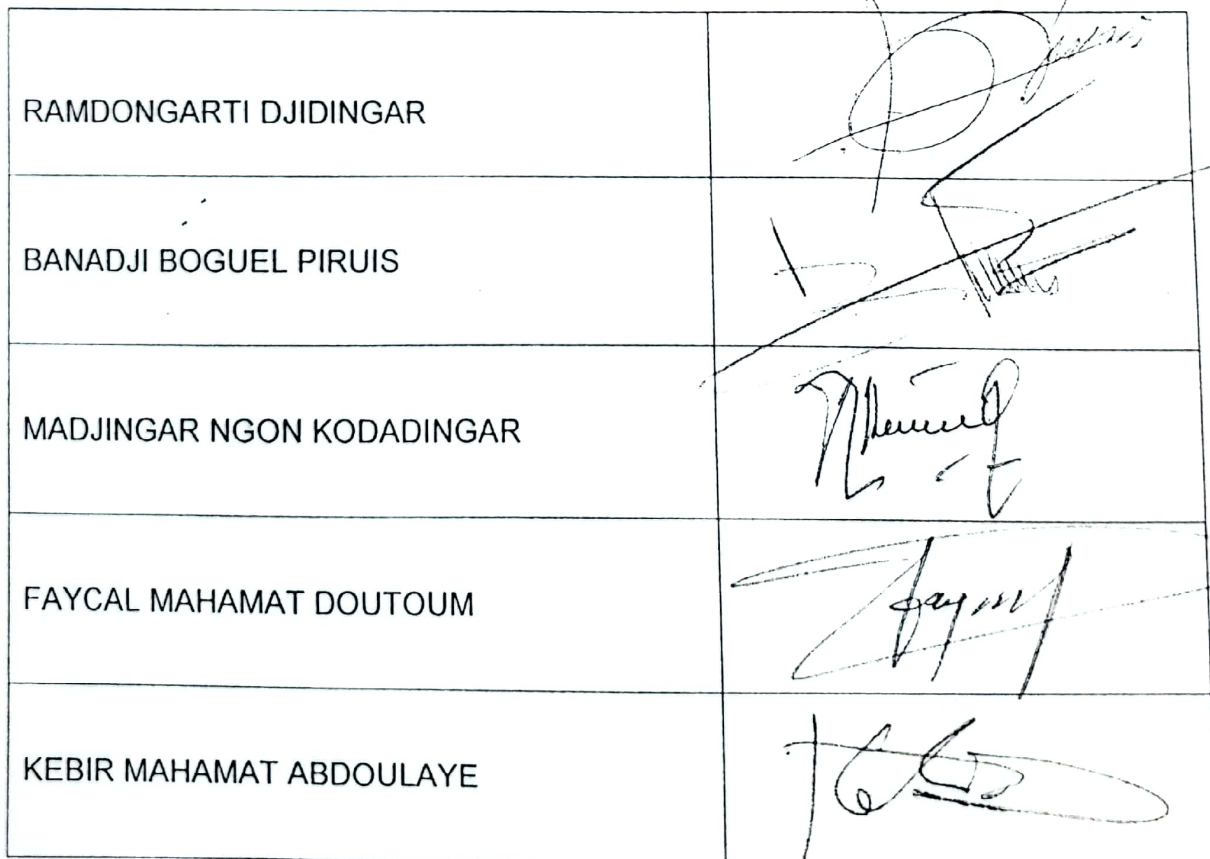 RAMDONGARTI DJIDINGAR
BANADJI BOGUEL PIRUIS
MADJINGAR NGON KODADINGAR
FAYCAL MAHAMAT DOUTOUM
KEBIR MAHAMAT ABDOULAYE